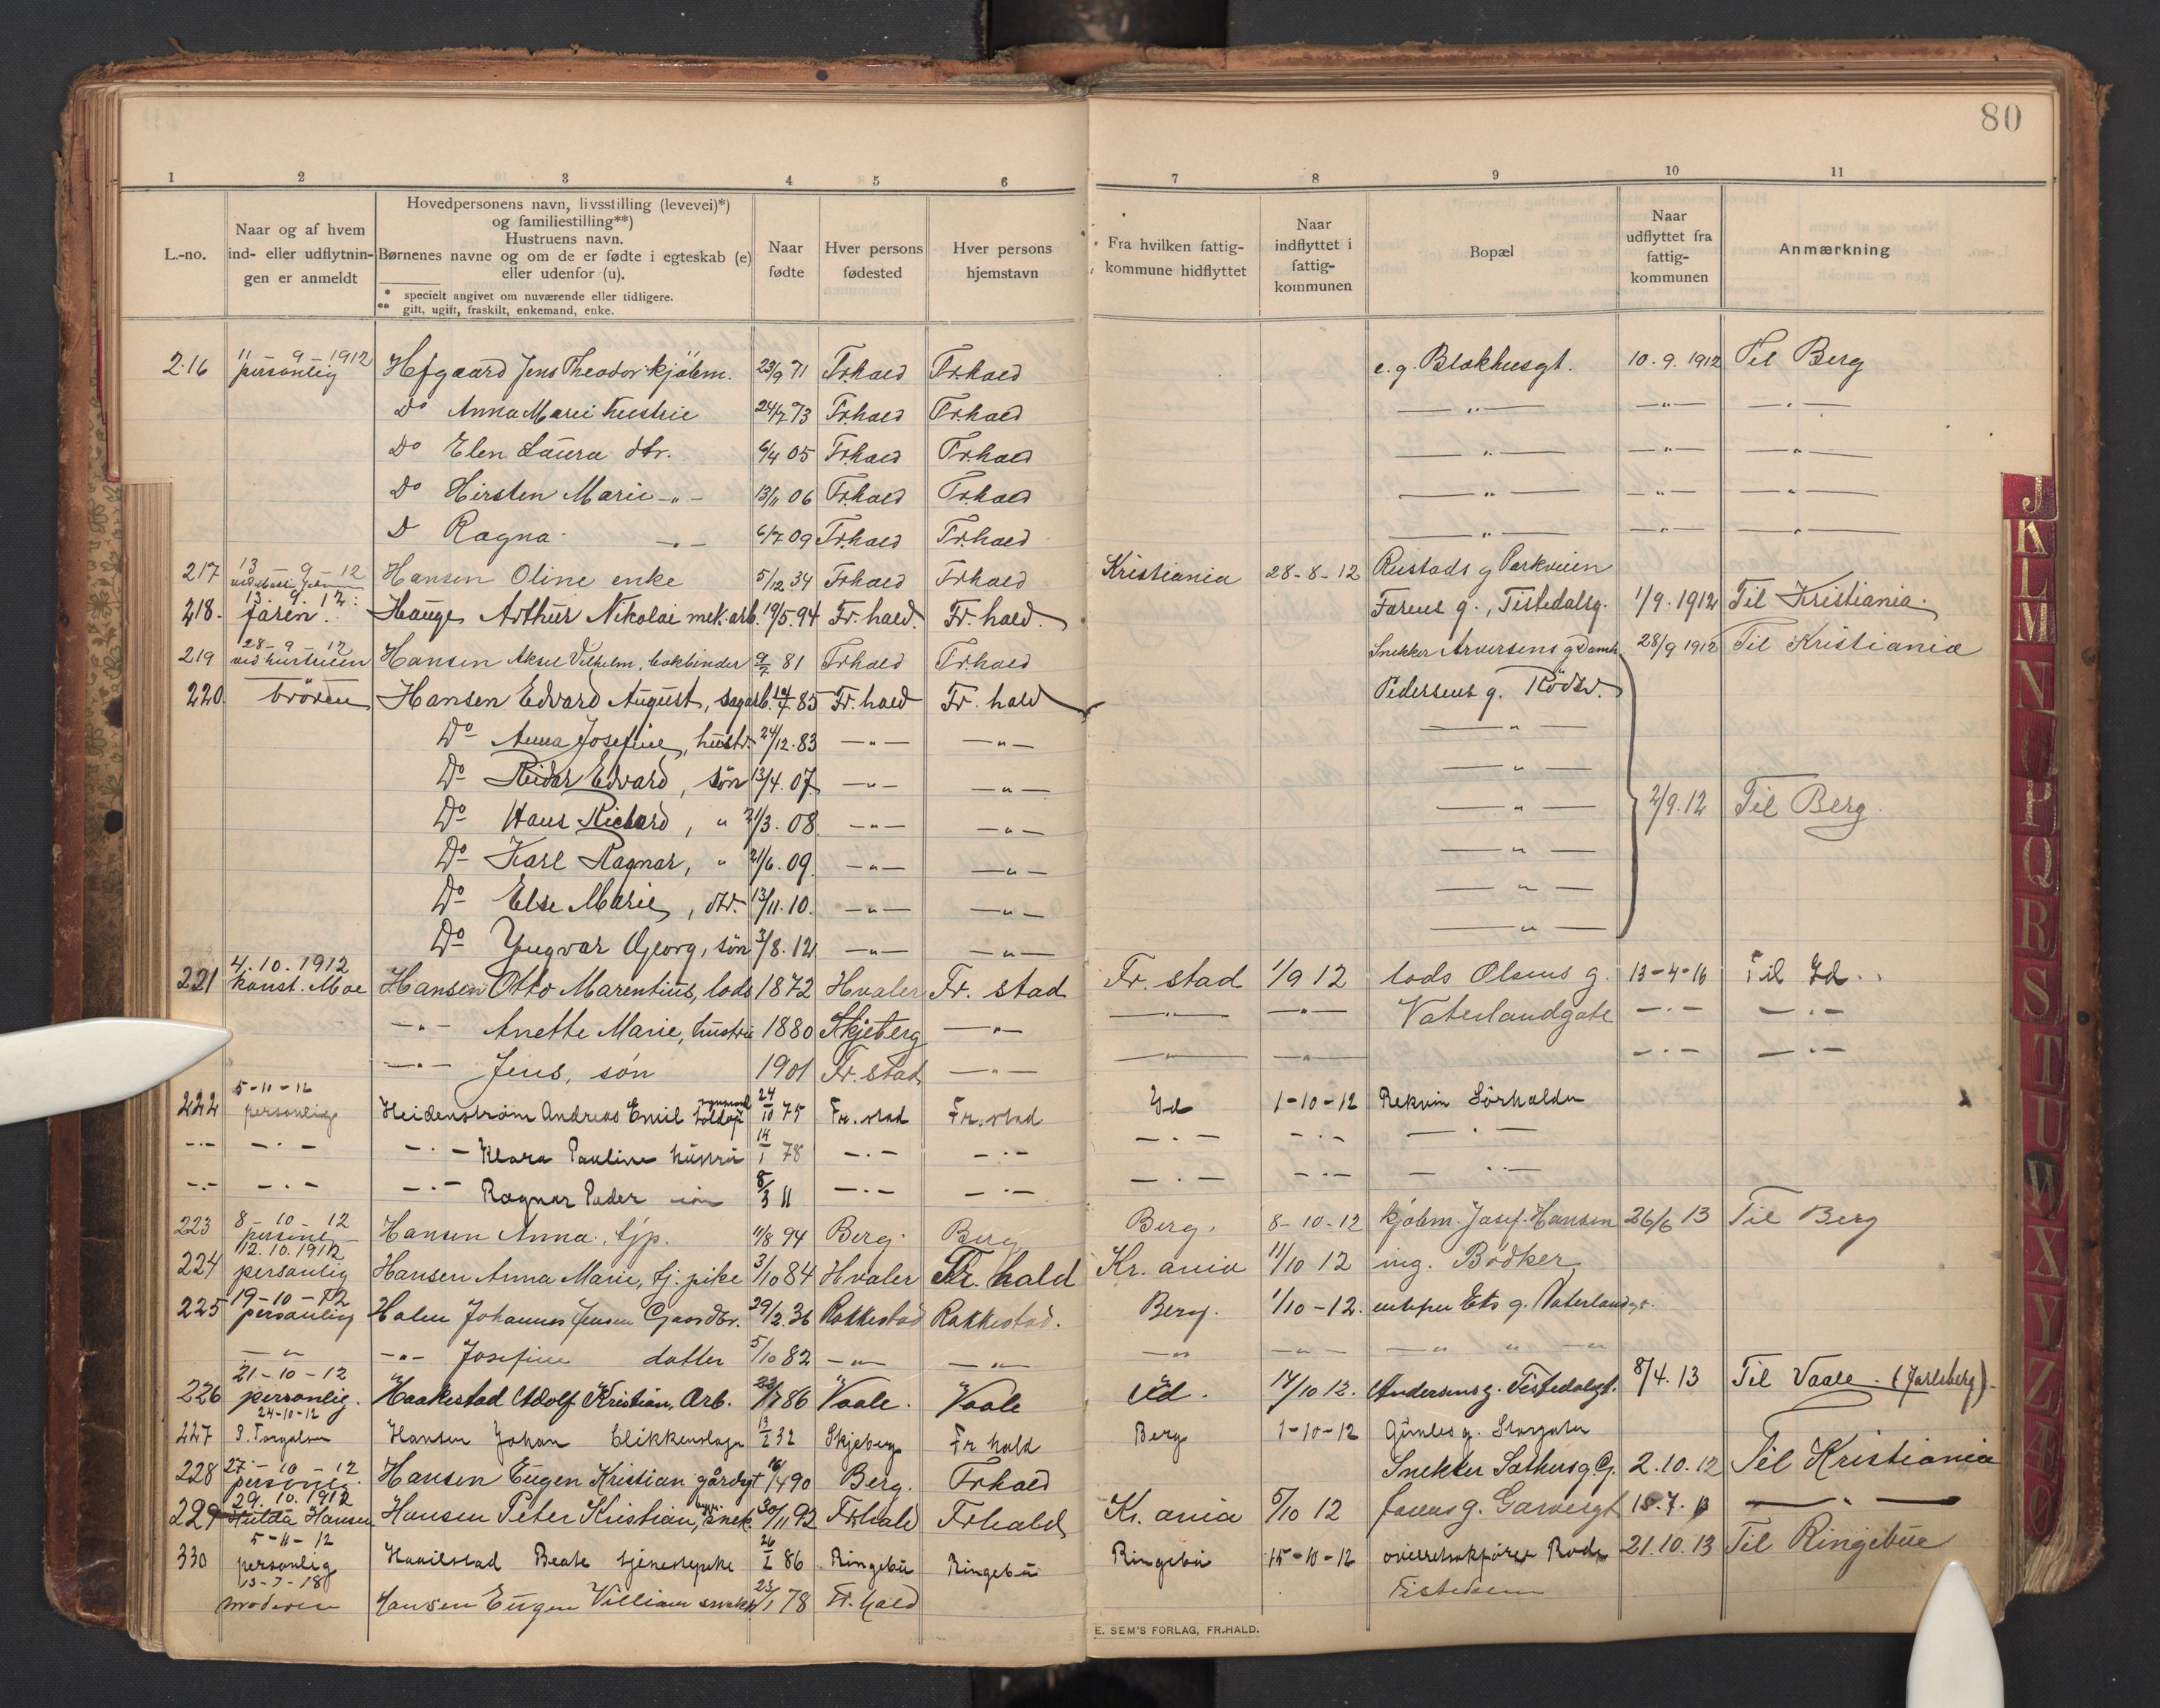 80
1 2 3 4 5 6 7 8 9 10 11
L.-no.
Naar og af hvem
ind- eller udflytnin-
gen er anmeldt
Hovedpersonens navn, livsstilling (levevei)*)
og familiestilling**)
Hustruens navn.
Børnenes navne og om de er fødte i egteskab (e)
eller udenfor (u).
* specielt angivet om nuværende eller tidligere.
** gift, ugift, fraskilt, enkemand, enke.
Naar
fødte
Hver persons
fødested
Hver persons
hjemstavn
Fra hvilken fattig-
kommune hidflyttet
Naar
indflyttet i
fattig-
kommunen
Bopæl
Naar
udflyttet fra
fattig-
kommunen
Anmærkning
216 11-9-1912 personlig Hofgaard Jens Theodor kjøbm. 23/9 71 Fr.hald Fr.hald e.g. Blokhusgt. 10.9.1912 Til Berg
Do Anna Marie hustru 24/7 73 Fr.hald Fr.hald —"— —"— —"—
Do Elen Laura dtr. 6/4 05 Fr.hald Fr.hald —"— —"— —"—
Do Kirsten Marie —"— 13/11 06 Fr.hald Fr.hald —"— —"— —"—
D Ragna —"— 6/7 09 Fr.hald Fr.hald —"— —"— —"—
217 13-9-12 Hansen Oline enke 5/12 34 Fr.hald Fr.hald Kristiania 28-8-12 Rustads g Parkveien
218. 13.9.12. faren. Hauge Arthur Nikolai mek.arb. 19/5.94 Fr.hald. Fr.hald. Farens g., Tistedalsg. 1/9.1912 Til Kristiania.
219 28-9-12 ved hustruen Hansen Aksel Vilhelm, bokbinder 9/7 81 Fr.hald Fr.hald Snekker Arversens g Damh. 28/9 1912 Til Kristiania
220. brøren Hansen Edvard August, sagarb. 14/7 85 Fr.hald Fr.hald Pedersens g. Rödsv.
Do Anna Josefine, hustr. 24/12.83 —"— —"— —"—
Do Reidar Edvard, søn 13/4.07. —"— —"— —"—
Do Hans Richard, " 21/3.08 —"— —"— —"— 2/9.12 Til Berg.
Do Karl Ragnar, " 21/6.09. —"— —"— —"—
Do Else Marie, dtr. 13/11.10. —"— —"— —"—
Do Yngvar Georg, søn 3/8.12 —"— —"— —"—
221 4.10.1912 Konst. Moe Hansen Otto Marentius, lods 1872 Hvaler Fr.stad Fr.stad 1/9 12 lods Olsens g. 13-4-16 Til Id.
—"— Anette Marie, hustru 1880 Skjeberg —"— —"— —"— Vaterlandgate —"— —"—
—"— Jens, søn 1901 Fr.stad —"— —"— —"— —"— —"—
222 5-11-12 personlig Heidenstrøm Andreas Emil 24/10 75 Fr.stad Fr.stad Id 1-10-12 Rekvin Sörhalden
—"— —"— —"— Klara Pauline hustru 14/1 78 —"— —"— —"— —"— —"—
—"— —"— —"— Ragnar Peder søn 8/3 11 —"— —"— —"— —"— —"—
223 8-10-12 personl. Hansen Anna. tjp. 11/8 94 Berg. Berg Berg. 8-10-12 kjøbm. Josef Hansen 26/6 13 Til Berg
224 12.10.1912 personlig Hansen Anna Marie, tj. pike 3/10 84 Hvaler Fr.hald Kr.ania 11/10 12 ing. Bødker
225 19-10-12 personlig Holen Johannes Jensen Gaardbr. 29/2.36 Rakkestad Rakkestad. Berg. 1/10-12. Vaterlandgt.
—"— —"— Josefine datter 5/10 82 —"— —"— —"— —"— —"— " —"—
226 21-10-12 personlig. Haakestad Adolf Kristian, Arb. 23/7 86 Vaale. Vaale Id. 14/10 12. Andersens g. Tistedalsgt. 8/4.13 Til Vaale. (Jarlsberg).
227 24-10-12 P. Torgalsen Hansen Johan blikkenslager 13/2 32 Skjeberg Fr hald Berg 1-10-12 g. Storgaten
228 27-10-12 personl. Hansen Eugen Kristian gårdsgt 16/4 90 Berg. Fr.hald Snekker g. 2.10.12 Til Kristiania
229 29.10.1912 Hulda Hansen Hansen Peter Kristian, snek. 30/11 92 Fr.hald Fr.hald Kr.ania 5/10 12 farens g. Garvergt 15.7.13 —"—
330 5-11-12 personlig Haailstad Beate tjenestepike 26/2 86 Ringebu Ringebu Ringebu 15-10-12 overretsakfører Rode 21.10.13 Til Ringebue
13-7-18 moderen Hansen Eugen Villiam 23/1 78 Fr.hald Tistedalen
E. SEM'S FORLAG, FR.HALD.
J
K
L
M
N
O
P
Q
R
S
T
U
W
X
Y
Z
Æ
Ø